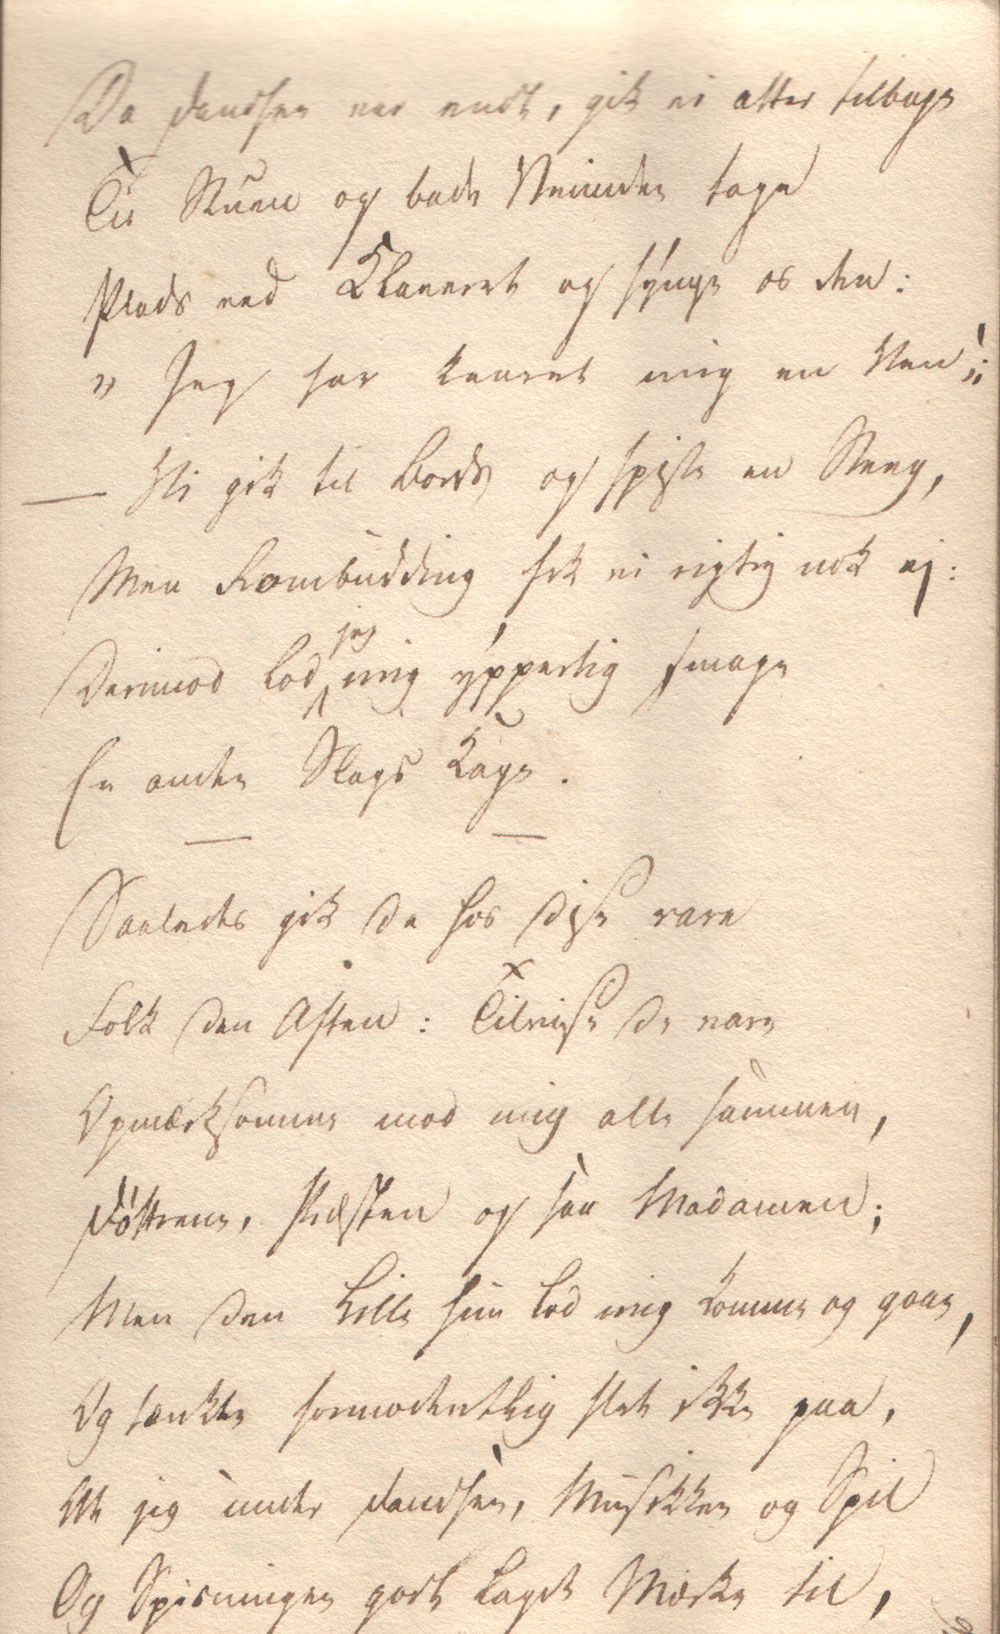 Da Dandsen var endt, gik vi atter tilbage
Til Stuen og bade Veninden tage
Plads ved Klaveret og synge os den:
„ Jeg har kaaret mig en Ven!;
— Vi gik til Bords og spiste en Steeg,
Men Rombudding fik vi rigtig nok ej:
Derimod lod jeg mig ypperlig smage
En anden Slags Kage.
Saaledes gik de hos disse rare
Folk den Aften: Tilvisse de vare
Opmærksomme mod mig alle sammen,
Døttrene, Præsten og saa Madamen;
Men den Lille hun lod mig komme og gaae,
Og tænkte formodentlig slet ikke paa,
At jeg under Dandsen, Musikken og Spil
Og Spisningen godt lagde Mærke til,